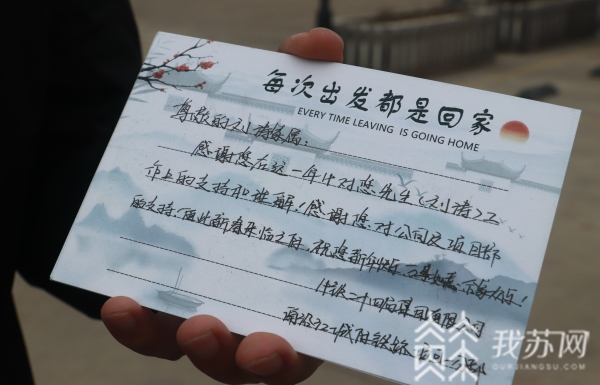 每次出发都是回家
EVERY TIME LEAVING IS GOING HOME
尊敬的刘涛家属：
感谢您在这一年中对您先生（刘涛）工
作上的支持和理解！感谢您对公司及项目部
的支持，值此新春来临之际，祝您新年快乐、
中铁二十四局集团有限公司
南沿江城际铁路
我苏网
OURJIANGSU.COM